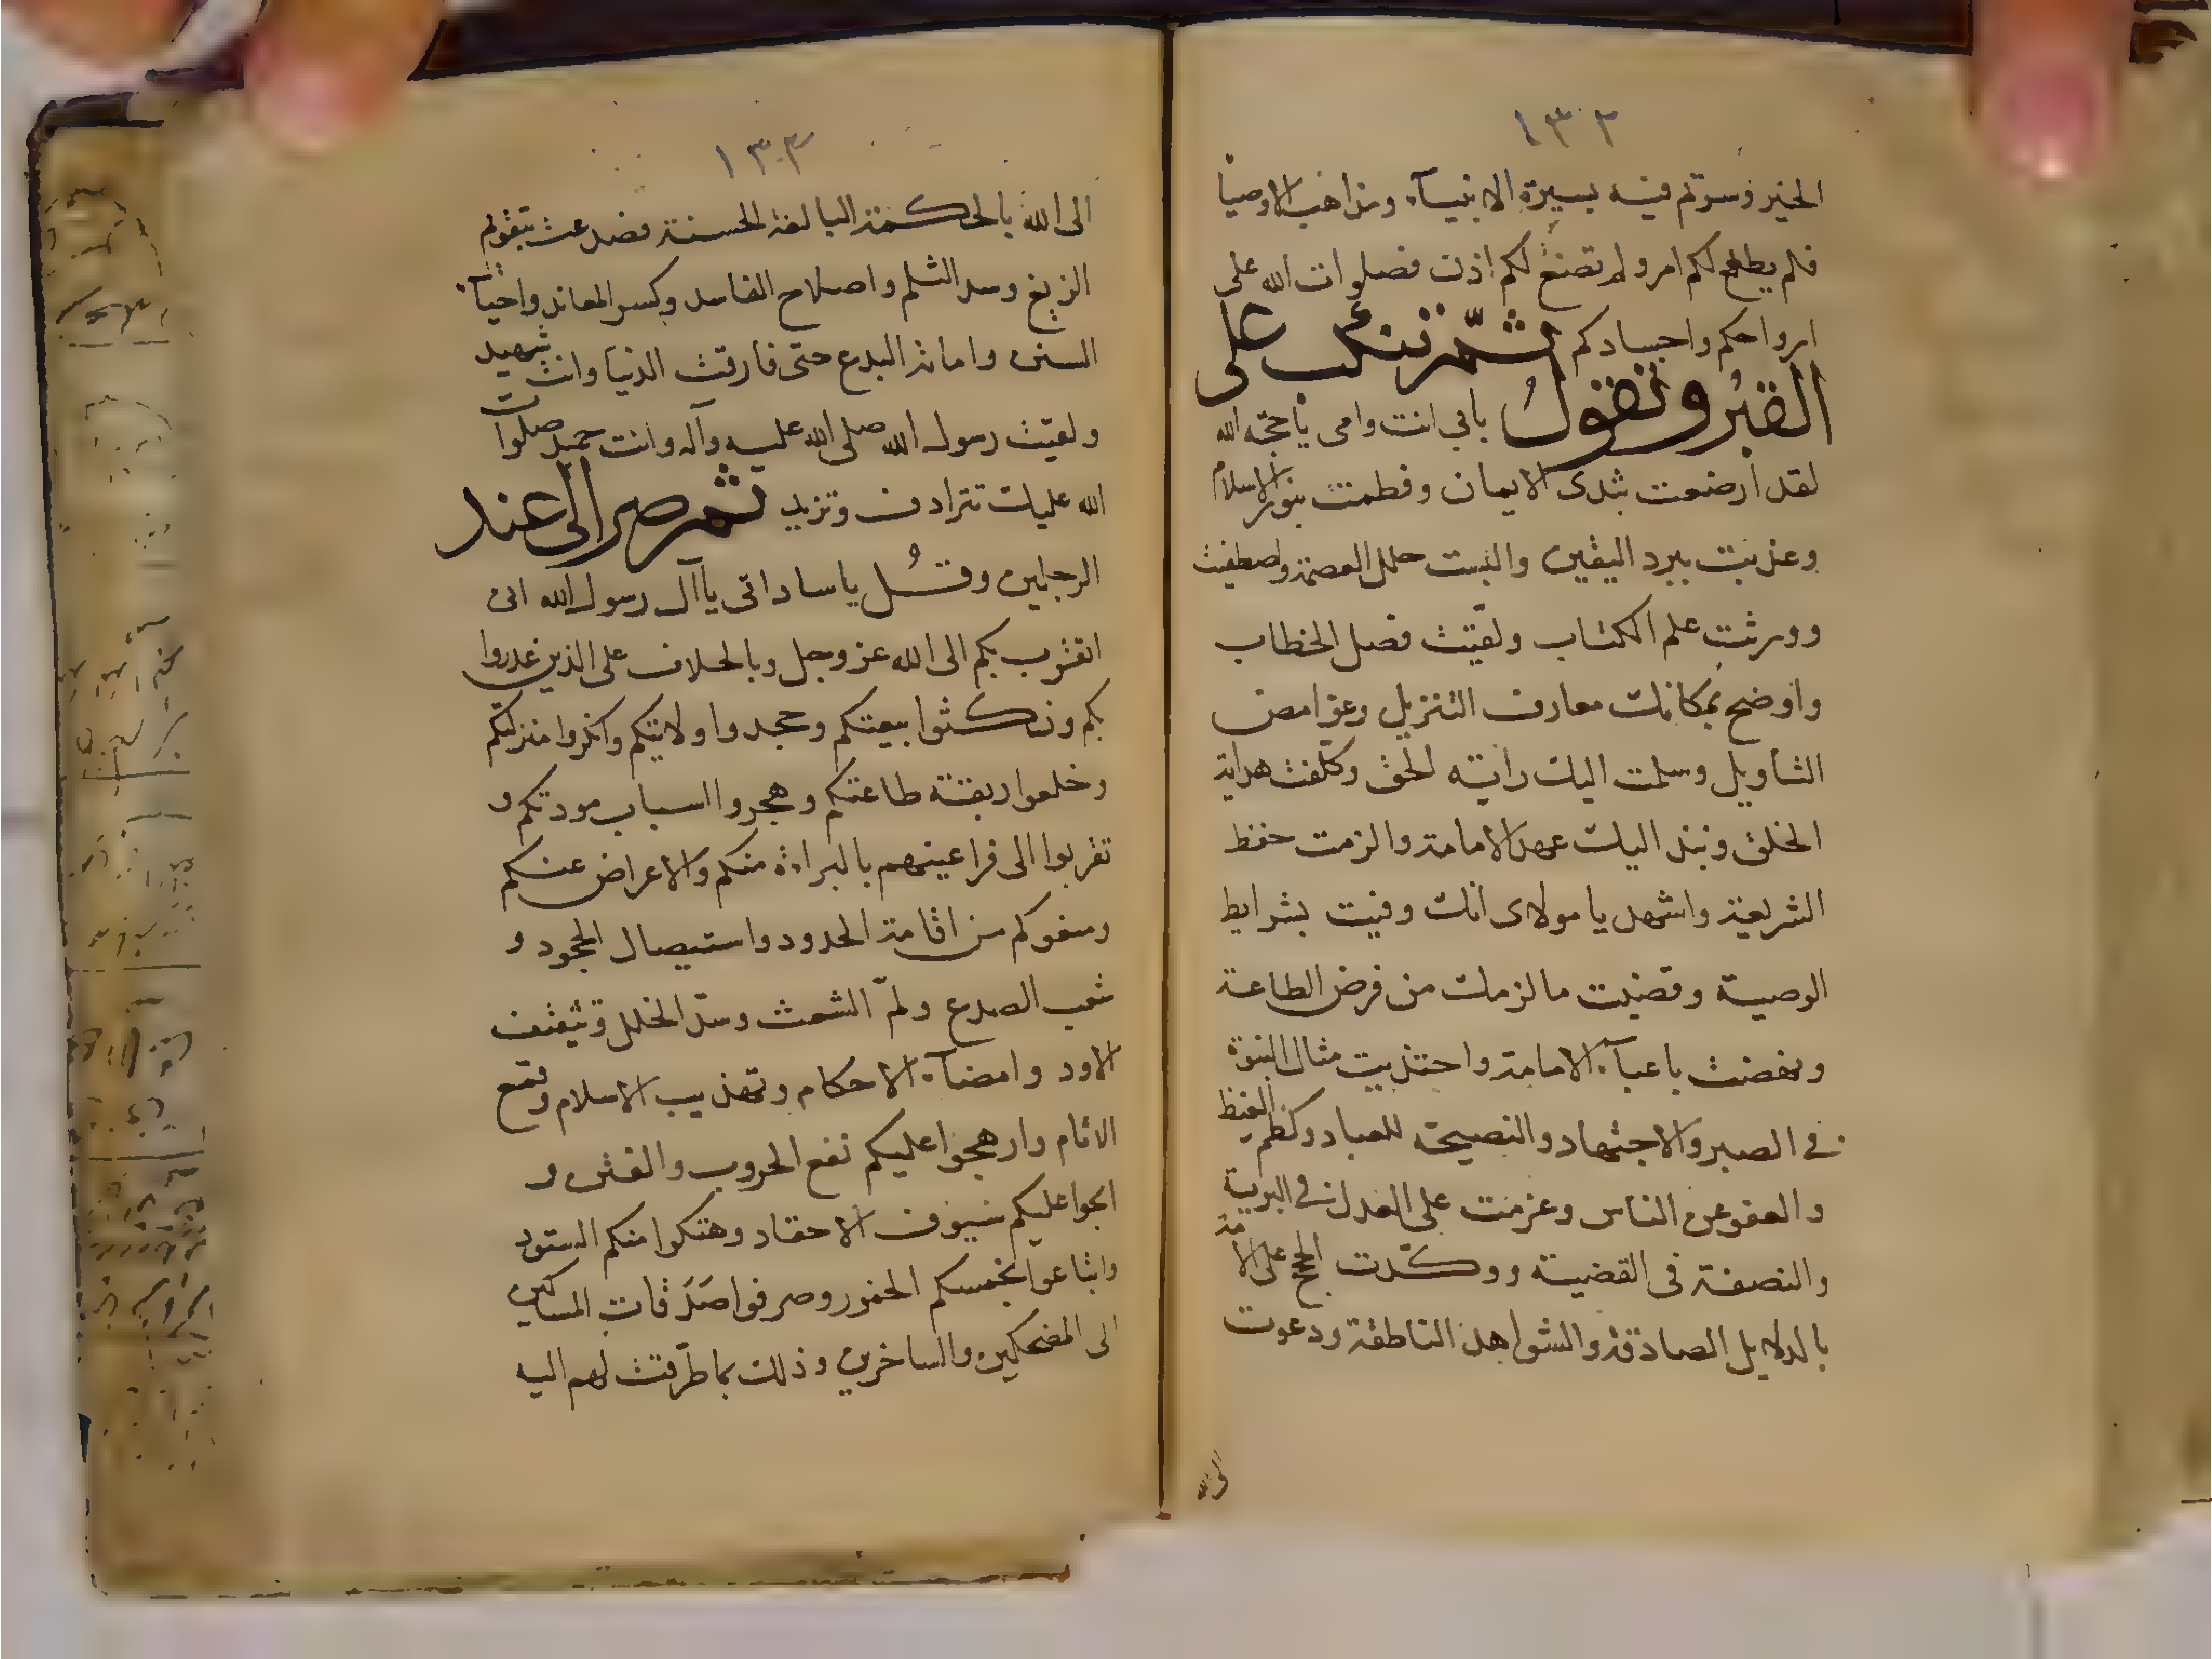 ١٣٢
الخير وسرتم فيه بسيرة الانبيآء ومذاهب الاوصيا
فلم يطع لكم امر ولم تصغ لكم اذن فصلوات الله على
ارواحكم واجسادكم ثم تنكب على
القبر وتقول بابى انت وامى يا حجة الله
لقد ارضعت بثدى الايمان وفطمت بنور الاسلام
وغذيت ببرد اليقين والبست حلل العصمة واصطفيت
وورثت علم الكتاب ولقنت فصل الخطاب
واوضح بمكانك معارف التنزيل وغوامض
التأويل وسلمت اليك راية الحق وكلفت هداية
الخلق ونبذ اليك عهد الامامة والزمت حفظ
الشريعة واشهد يا مولاى انك وفيت بشرايط
الوصية وقضيت ما لزمك من فرض الطاعة
ونهضت باعبآء الامامة واحتذيت مثال النبوة
فى الصبر والاجتهاد والنصيحة للعباد وكظم الغيظ
والعفو عن الناس وعزمت على العدل فى البرية
والنصفة فى القضية ووكدت الحجج على الامة
بالدلايل الصادقة والشواهد الناطقة ودعوت
الى الله
١٣٣
الى الله بالحكمة البالغة الحسنة فضدعت بتقويم
الزيغ وسد الثلم واصلاح الفاسد وكسر المعاند واحيآء
السنن واماتة البدع حتى فارقت الدنيا وانت شهيد
ولقيت رسول الله صلى الله عليه وآله وانت حميد صلوات
الله عليك تترادف وتزيد ثم صر الى عند
الرجلين وقُل يا ساداتى يا آل رسول الله انى
اتقرب بكم الى الله عز وجل وبالخلاف على الذين غدروا
بكم ونكثوا بيعتكم وجحدوا ولايتكم وانكروا منزلتكم
وخلعوا ربقة طاعتكم وهجروا اسباب مودتكم و
تقربوا الى فراعينهم بالبراءة منكم والاعراض عنكم
ومنعوكم من اقامة الحدود واستيصال الجحود و
شعب الصدع ولم الشعث وسد الخلل وتثقيف
الاود وامضآء الاحكام وتهذيب الاسلام وقمع
الاثام وارهجوا عليكم نقع الحروب والفتن و
انحوا عليكم سيوف الاحقاد وهتكوا منكم الستور
وابتاعوا بخمسكم الخمور وصرفوا صدقات المساكين
الى المضحكين والساخرين وذلك بما طرقت لهم اليه